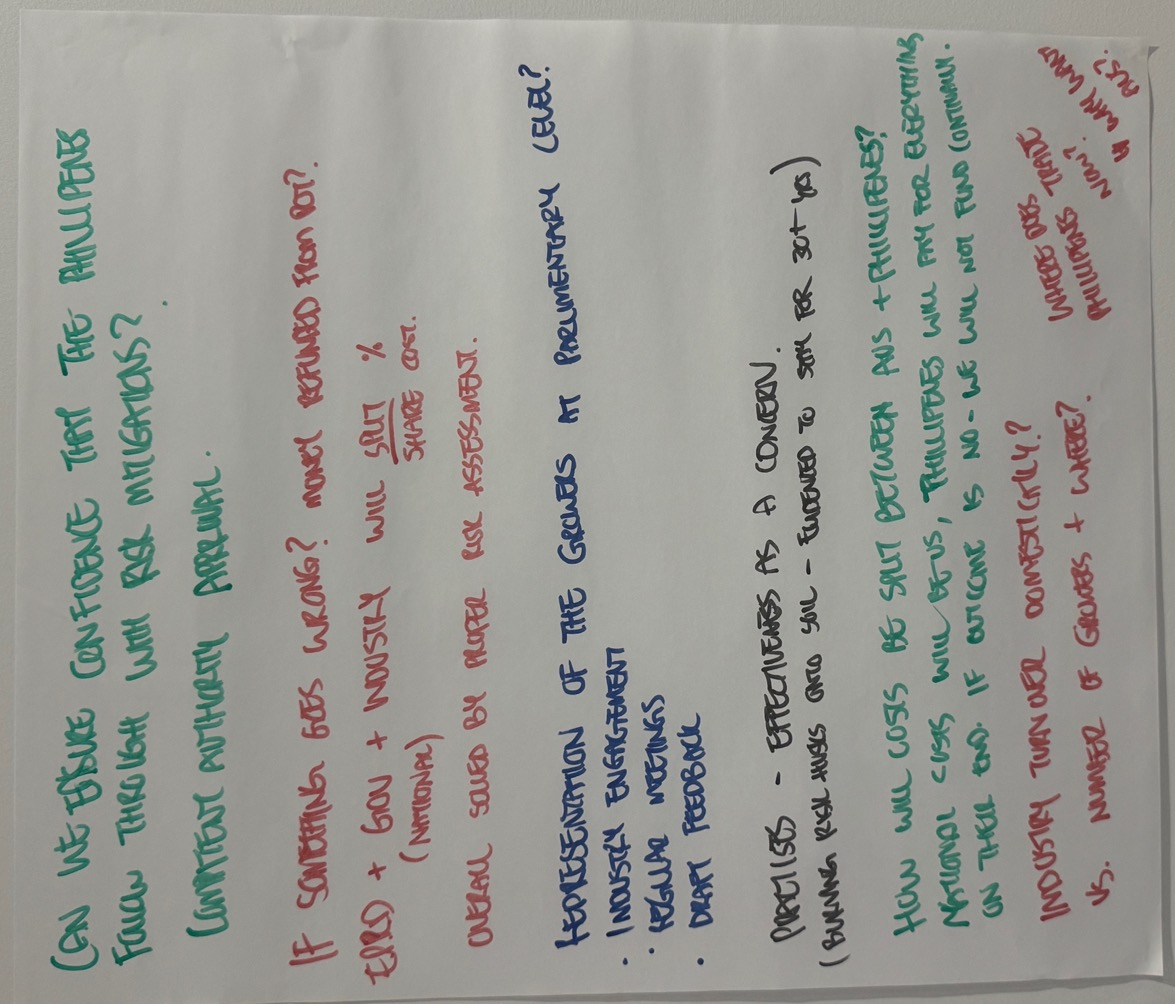 CAN WE ENSURE CONFIDENCE THAT THE PHILLIPENES
FOLLOW THROUGH WITH RISK MITIGATIONS?
COMPITENT AUTHORITY APPROVAL.
IF SOMETHING GOES WRONG? MONEY REFUNDED FROM POT?.
EPRD + GOV + INDUSTRY WILL SPLIT %
(NATIONAL) SHARE COST.
OVERALL SOLVED BY PROPER RISK ASSESSMENT.
REPRESENTATION OF THE GROWERS AT PARLIMENTARY LEVEL?.
· INDUSTRY ENGAGEMENT
· REGULAR MEETINGS
· DRAFT FEEDBACK
PRACTISES - EFFECTIVENESS AS A CONCERN.
(BURNING RISK HUSKS ONTO SOIL - EVIDENCED TO STAY FOR 30+ YRS)
HOW WILL COSTS BE SPLIT BETWEEN AUS + PHILLIPENES?
NATIONAL COSTS WILL BE US, PHILLIPENES WILL PAY FOR EVERYTHING
ON THEIR END. IF OUTCOME IS NO - WE WILL NOT FUND CONTINUALLY.
INDUSTRY TURNOVER DOMESTICALLY?
VS. NUMBER OF GROWERS + WHERE?.
WHERE DOES
PHILLIPENES TRADE
NOW?
WHY WANT
AUS?.